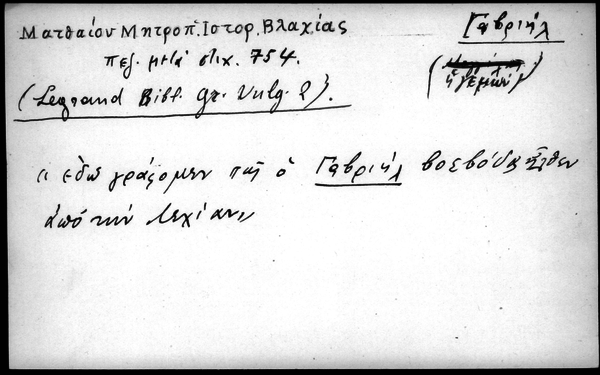 Ματθαίου Μητροπ. Ιστορ. Βλαχίας
πεζ. μετά στιχ. 754.
(Legrand Bibl. Gr. Vulg. 2).
Γαβριήλ
(ἡγεμών)
"εδώ γράφομεν πῶς ὁ Γαβριήλ βοεβόδας ἦλθεν
ἀπό την Λεχίαν"